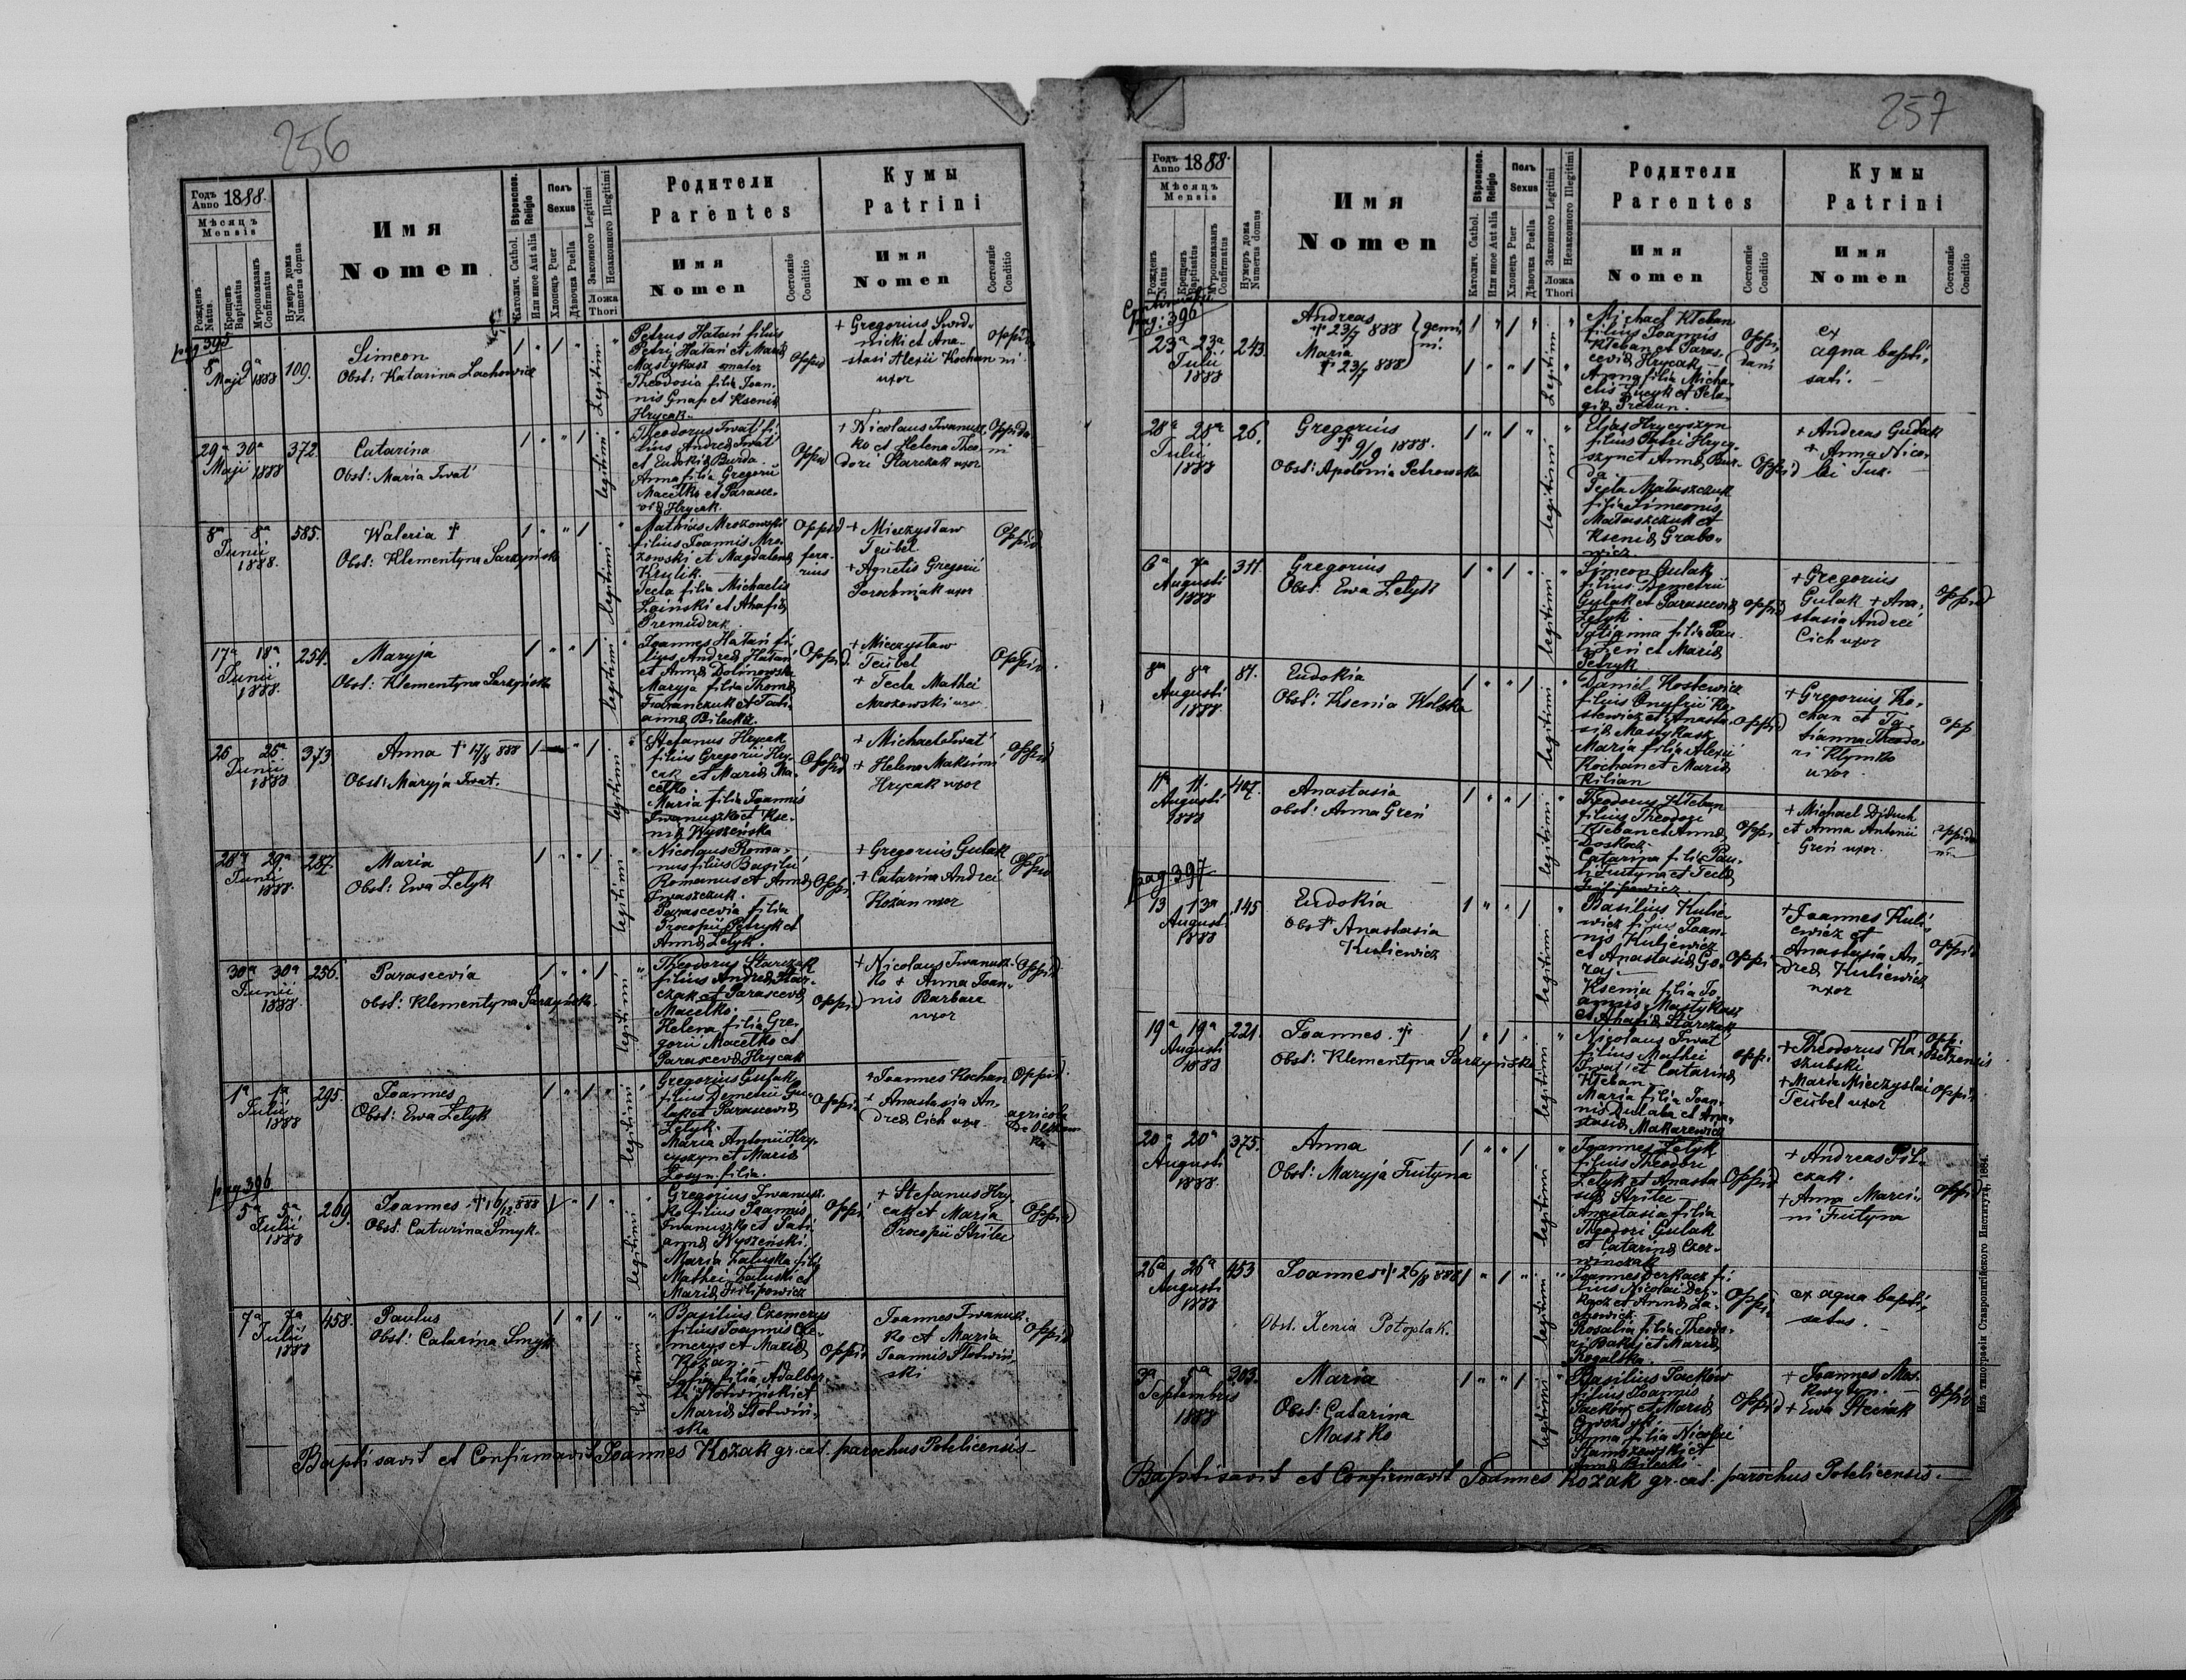 256
Годъ Anno 1888.
Мѣсяцъ Mensis
Рожденъ Natus
Крещенъ Baptisatus
Мѵропомазанъ Confirmatus
Нумеръ дома Numerus domus
Имя Nomen
Вѣроисповѣд. Religio
Католич. Cathol.
Или иное Aut alia
Полъ Sexus
Хлопецъ Puer
Дѣвочка Puella
Законного Legitimi
Незаконного Illegitimi
Ложа Thori
Родители Parentes
Имя Nomen
Состоянiе Conditio
Кумы Patrini
Имя Nomen
Состоянiе Conditio
pag 395
8 9ª
Maji 1888
109.
Simeon
Obst: Katarina Lachowicz
Legitimi
Petrus Hatań filius
Petri Hatań et Mariæ
Mastykasz mater
Theodosia filia Joan-
nis Gnap et Kseniæ
Hrycak.
Oppid
+ Gregorius
et Ana-
stasi Alexii Kochan
uxor
Oppida
ni
29ª 30ª
Maji 1888
372.
Catarina
Obst: Maria Iwat
legitimi
Theodorus Iwat fi-
lius Andreæ Iwat
et Eudokiæ Burda.
Anna filia Gregorii
Macelko et Parasce-
viæ Hrycak.
Oppid
+ Nicolaus Iwanusz
ko et Helena Theo
dori Starczak uxor
Oppida
ni
8ª 8ª
Junii
1888.
585.
Waleria †
Obst: Klementyna Sarzyńska
legitimi
Mathias Mrozowski
filius Joannis Mro-
zowski et Magdalenæ
Krulik.
Tecla filia Michaelis
Łaiński et Ahafiæ
Premudrak.
Oppid
fera-
rius
+ Mieczysław
Teübel
+ Agnetis Gregorii
Porochniak uxor
Oppid
17ª 18ª
Junii
1888.
254.
Maryja
Obst: Klementyna Sarzyńska
legitimi
Joannes Hatań fi-
lius Andreæ Hatań
et Annæ Dolinowska
Maryja filia Thomæ
Furanczuk et Tati-
annæ Bilecka.
Oppid.
+ Mieczysław
Teübel
+ Tecla Mathei
Mrozowski uxor
Oppid.
25 25ª
Junii
1888
373
Anna † 17/8 888
Obst: Maryja Iwat.
legitimi
Stefanus Hrycak
filius Gregorii Hry-
cak et Mariæ Ma-
celko.
Maria filia Joannis
Iwanuszko et Kse-
niæ Wyszeńska
Oppid
+ Michael Iwat
+ Helena Maksimi
Hrycak uxor
Oppid
28ª 29ª
Junii
1888.
287.
Maria
Obst: Ewa Zelyk
legitimi
Nicolaus Roma-
nus filius Basilii
Romanus et Annæ
Iwaszczuk.
Parascevia filia
Procopii Petryk et
Annæ Zelyk.
Oppi
+ Gregorius Gulak
+ Catarina Andrei
Kozan uxor
Oppid
30ª 30ª
Junii
1888.
256.
Parascevia
Obst: Klementyna Sarzyńska.
legitimi
Theodorus Starczak
filius Andreæ Star-
czak et Parasceviæ
Macelko.
Helena filia Gre-
gorii Macelko et
Parasceviæ Hrycak
Oppid
+ Nicolaus Iwanusz-
ko + Anna Joan-
nis Barbacz
uxor
Oppid
1ª 1ª
Julii
1888
295.
Joannes
Obst: Ewa Zelyk
legitimi
Gregorius Gulak
filius Demetrii Gu-
lak et Parasceviæ
Zelyk.
Maria Antonii Hry-
cyszyn et Mariæ
Losyn filia.
Oppid.
+ Joannes Kochan
+ Anastasia An-
dreæ Cich uxor
Oppid
agricola
pag 396
5ª 5ª
Julii
1888
269.
Joannes † 16/12 888
Obst: Catarina Smyk.
legitimi
Gregorius Iwanusz-
ko filius Joannis
Iwanuszko et Tati-
annæ Wyszeński.
Maria Załuska filia
Mathei Załuski et
Mariæ Filipowicz
Oppi
+ Stefanus Hry
cak et Maria
Procopii Strilec
Oppid
7ª 7ª
Julii
1888
458.
Paulus
Obst: Catarina Smyk
legitimi
Basilius Czemerys
filius Joannis Cze-
merys et Mariæ
Kozan.
filia Adalber-
ti Słotwiński et
Mariæ Słotwiń-
ska
Oppid
Joannes Iwanusz-
ko et Maria
Joannis Słotwiń-
ski
Oppid
Baptisavit et Confirmavit Joannes Kozak gr. cat. parochus Potelicensis
257
Годъ Anno 1888.
Мѣсяцъ Mensis
Рожденъ Natus
Крещенъ Baptisatus
Мѵропомазанъ Confirmatus
Нумеръ дома Numerus domus
Имя Nomen
Вѣроисповѣд. Religio
Католич. Cathol.
Или иное Aut alia
Полъ Sexus
Хлопецъ Puer
Дѣвочка Puella
Законного Legitimi
Незаконного Illegitimi
Ложа Thori
Родители Parentes
Имя Nomen
Состоянiе Conditio
Кумы Patrini
Имя Nomen
Состоянiе Conditio
pag: 396
23ª 23ª
Julii
1888
243.
Andreas
† 23/7 888
Maria
† 23/7 888
gemi-
ni.
Legitimi
Michael Kleban
filius Joannis
Kleban et Paras-
ceviæ Hrycak
Anna filia Micha-
elis Łucyk et Pela-
giæ Predun.
Oppi-
dani
ex
aqua bapti-
sati.
28ª 28ª
Julii
1888
26.
Gregorius
† 9/9 1888.
Obst: Apolonia Petrowska
legitimi
Elias Hrycyszyn
filius Petri Hrycy-
szyn et Annæ Bur-
da
Tecla Matuszczuk
filia Simeonis
Matuszczuk et
Kseniæ Grabo-
wicz
Oppid
+ Andreas Gulak
+ Anna Nico-
lai Tuz.
6ª 7ª
Augusti
1888
311.
Gregorius
Obst: Ewa Zelyk
legitimi
Simeon Gulak
filius Demetrii
Gulak et Parasceviæ
Zelyk.
Tatianna filia Pau-
li Zen et Mariæ
Petryk
Oppid
+ Gregorius
Gulak + Ana-
stasia Andrei
Cich uxor
Oppid
8ª 8ª
Augusti
1888.
81.
Eudokia
Obst: Ksenia Wolska
legitimi
Daniel Kostewicz
filius Onufrii Ko-
stewicz et Anasta-
siæ Mastykasz
Maria filia Alexii
Kochan et Mariæ
Kilian
Oppid
+ Gregorius Ko-
chan et Ta-
tianna Theodo-
ri Klymko
uxor
Opp
11ª 11.
Augusti
1888
407.
Anastasia
Obst: Anna Greń
legitimi
Theodorus Kleban
filius Theodori
Kleban et Annæ
Doskocz
Catarina filia Pau-
li Futyna et Teclæ
Filipowicz.
Oppi
+ Michael Djduch
et Anna Antonii
Greń uxor.
Oppida
ni
pag 397
13 13ª
August.
1888
145
Eudokia
Obst Anastasia
Kuliewicz
legitimi
Basilius Kulie-
wicz filius Joan-
nis Kuliewicz
et Anastasiæ Go-
raj
Ksenia filia Jo
annis Mastykasz
et Ahafiæ Starczak
Oppi
+ Joannes Kuli-
ewicz et
Anastasia An-
dreæ Kuliewicz
uxor
Oppid
19ª 19ª
Augusti
1888
221.
Joannes. †
Obst: Klementyna Sarzyńska
legitimi
Nicolaus Iwat
filius Mathei
Iwat et Catarinæ
Kleban
Maria filia Joan-
nis Dulaba et Ana-
stasiæ Makarewicz
Oppi.
+ Theodorus Ka-
shubski
+ Maria Mieczyslai
Teübel uxor
Opp.
Betzensis
Oppi.
20ª 20ª
Augusti
1888.
375.
Anna
Obst: Maryja Futyna
legitimi
Joannes Zelyk
filius Theodori
Zelyk et Anasta
siæ Strilec
Anastasia filia
Theodori Gulak
et Catarinæ Czer-
winczak
Oppid
+ Andreas Pił-
czak.
+ Anna Marci-
ni Futyna
Oppi
26ª 26ª
Augusti
1888
453
Joannes † 26/8 888
Obst. Xenia Potoplak.
legitimi
Joannes Derkacz fi-
lius Nicolai Der-
kacz et Annæ La-
chowicz.
Rosalia filia Theodo-
ri Bakaj et Mariæ
Rogalska.
Oppi
ex aqua bapti-
satus.
3ª 5ª
Septembris
1888
303.
Maria
Obst: Catarina
Maszko
legitimi
Basilius Jacków
filius Joannis
Jacków et Mariæ
Gwozdyk
Anna filia Nicolai
et
Annæ Bilecki
Oppid
+ Joannes Mos-
kwytyn.
+ Ewa Steciak
Oppid
Baptisavit et Confirmavit Joannes Kozak gr. cat. parochus Potelicensis.
Изъ типографiи Ставропигiйского Института, 1884.